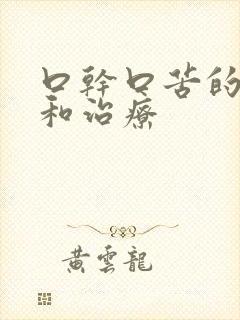 口幹口苦的
和治療
黃雲龍